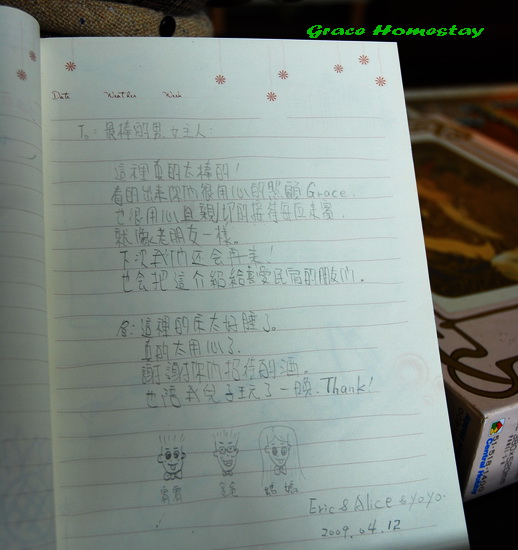 Grace Homestay
Date Weather Week
To: 最棒的男女主人:
這裡真的太棒的!
看的出來你们很用心的照顧Grace.
也很用心且親切的接待每位走客.
就像老朋友一樣。
下次我们还会再来!
也会把這介紹給喜愛民宿的朋友们.
這裡的床太好睡了。
真的太用心了.
謝謝你们招待的酒。
也陪我兒子玩了一晚. Thank!
爸爸 媽媽
Eric & Alice & yoyo.
2009. 04. 12